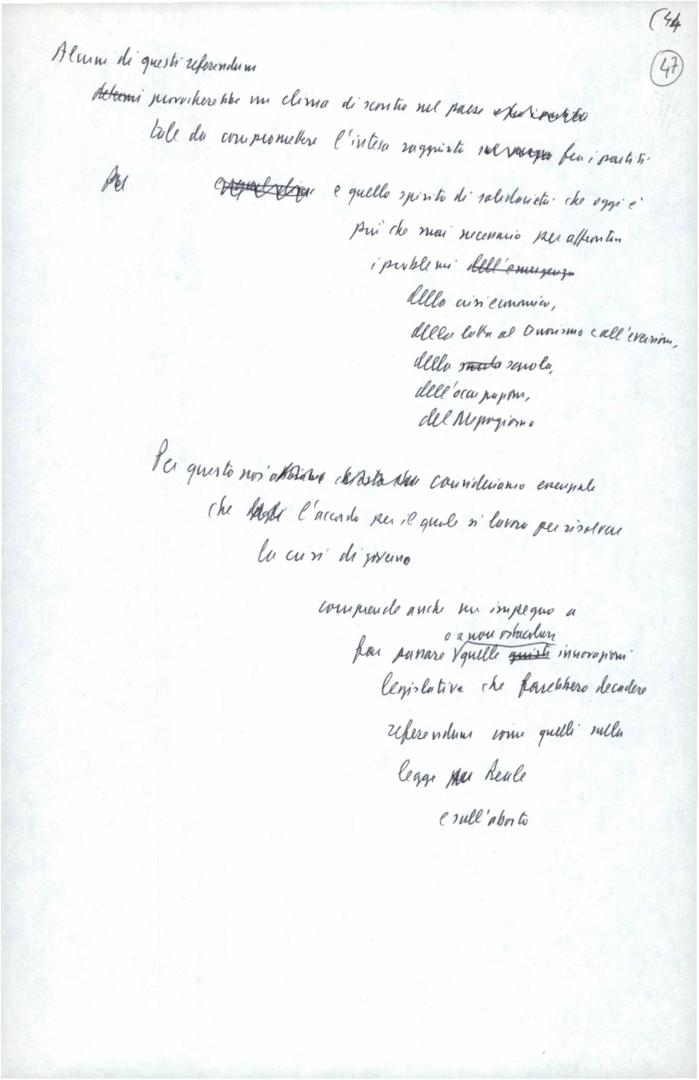 (44
47
Alcuni di questi referendum
provocherebbe un clima di scontro nel paese
tale da compromettere l'intesa raggiunta fra i partiti
e quello spirito di solidarietà che oggi è
più che mai necessario per affrontare
i problemi dell'emergenza
della crisi economica,
della lotta al terrorismo e all'eversione,
della scuola,
dell'occupazione,
del Mezzogiorno
Per questo noi consideriamo essenziale
che l'accordo per il quale si lavora per risolvere
la crisi di governo
comprende anche un impegno a
o a non ostacolare
far passare quelle questi innovazioni
legislative che farebbero decadere
referendum come quelli sulla
legge Reale
e sull'aborto